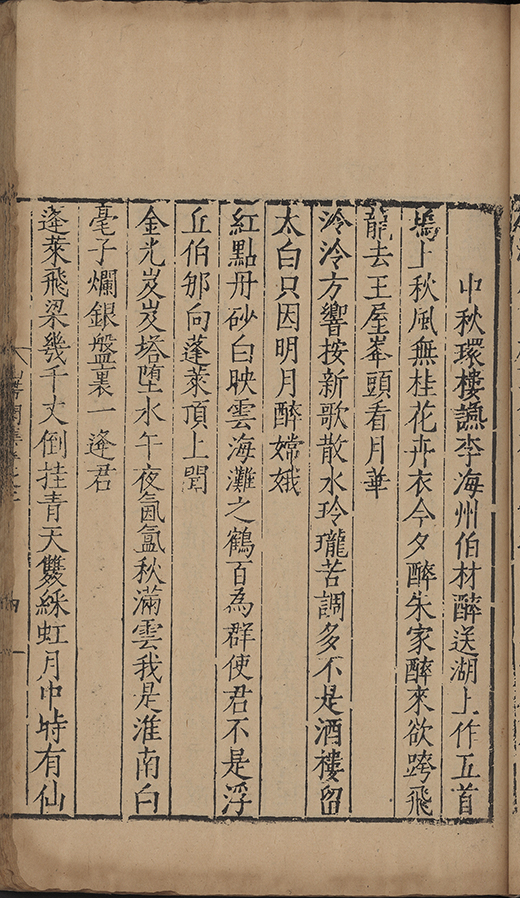 中秋環樓讌李海州伯材醉送湖上作五首
塢上秋風無桂花卉衣今夕醉朱家醉來欲跨飛
龍去王屋峯頭看月華
泠泠方響按新歌散水玲瓏苦調多不是酒樓留
太白只因明月醉嫦娥
紅點丹砂白映雲海灘之鶴百為群使君不是浮
丘伯那向蓬萊頂上聞
金光岌岌塔墮水午夜氤氳秋滿雲我是淮南白
毫子爛銀盤裏一逢君
逢萊飛梁幾千丈倒挂青天雙綵虹月中時有仙